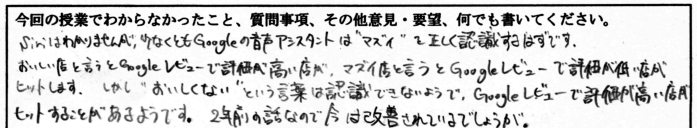 今回の授業でわからなかったこと、質問事項、その他意見・要望、何でも書いてください。
Siriはわかりませんが、少なくともGoogleの音声アシスタントは"マズイ"を正しく認識するはずです。
おいしい店と言うとGoogleレビューで評価が高い店が、マズイ店と言うとGoogleレビューで評価が低い店が
ヒットします。しかし"おいしくない"という言葉は認識できないようで、Googleレビューで評価が高い店が
ヒットすることがあるようです。2年前の話なので今は改善されているでしょうが。